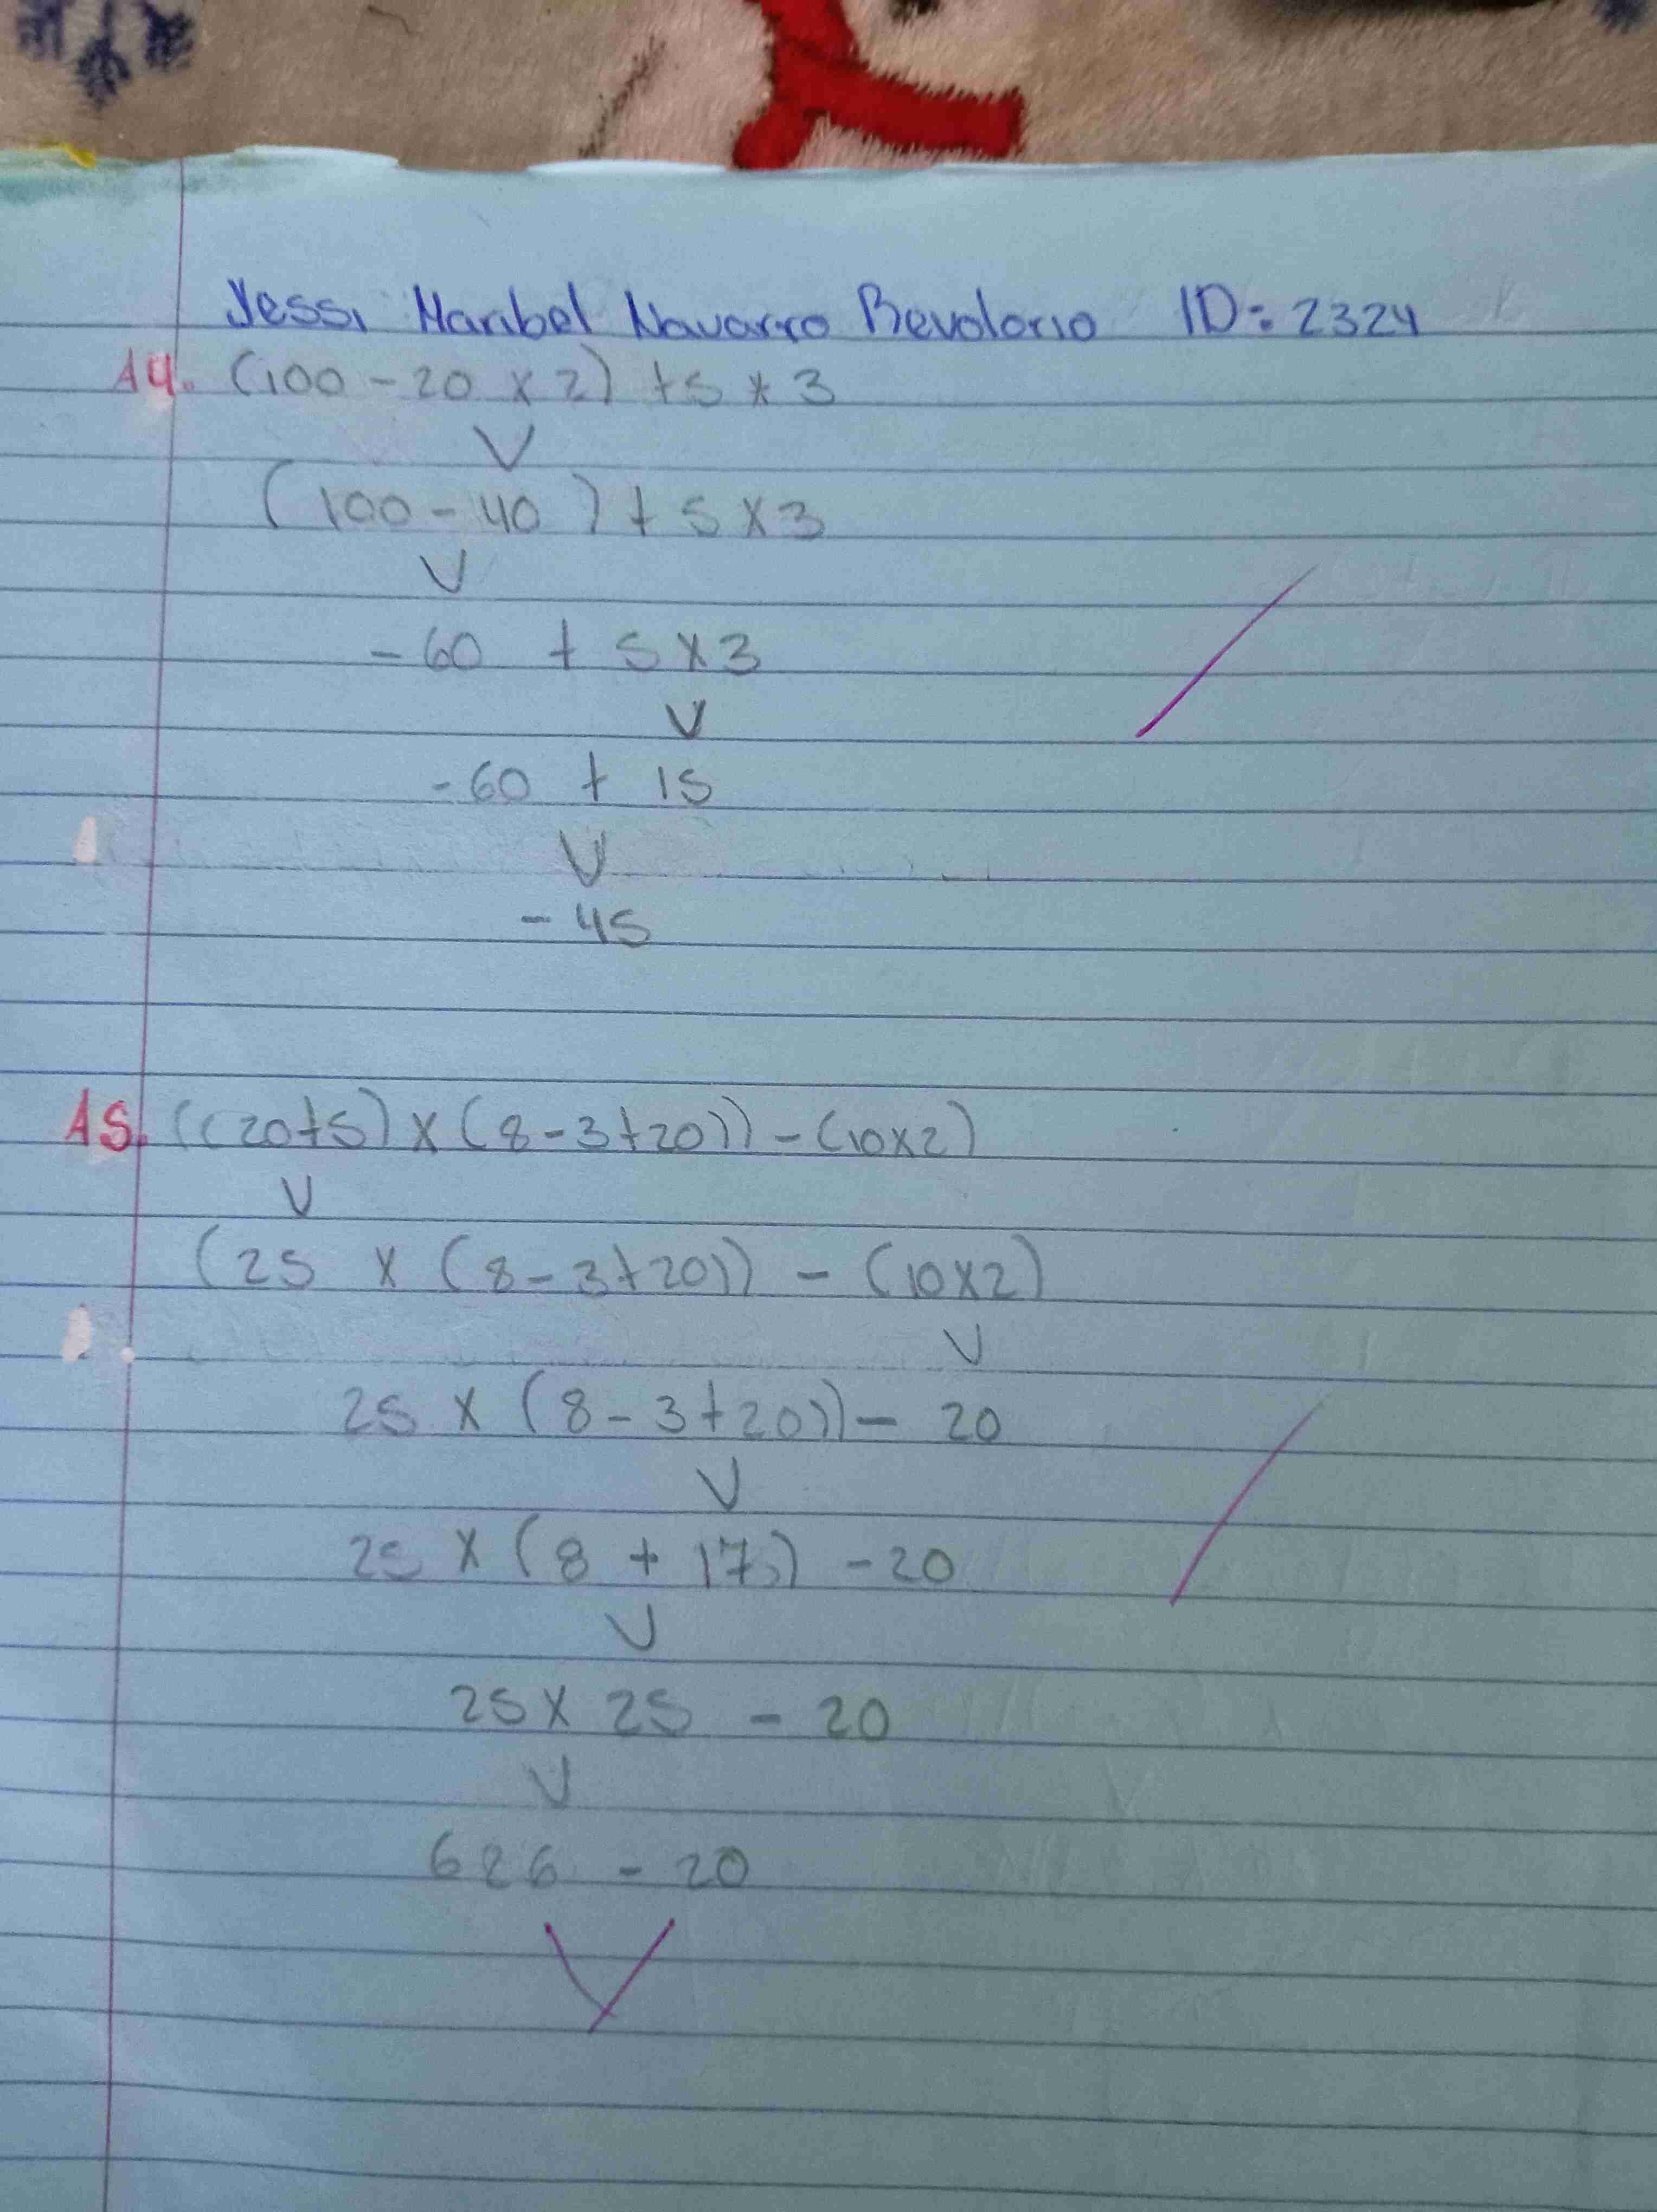 Yessi Maribel Navarro Revolorio ID: 2324
A4. (100 - 20 x 2) + 5 x 3
(100 - 40) + 5 x 3
- 60 + 5 x 3
- 60 + 15
- 45
A5. ((20+5) x (8-3+20)) - (10x2)
(25 x (8-3+20)) - (10x2)
25 x (8-3+20)) - 20
25 x (8 + 17) - 20
25 x 25 - 20
626 - 20